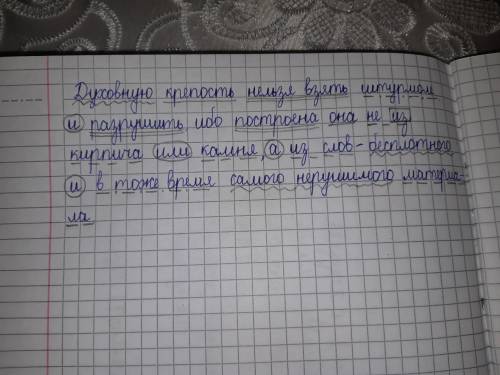 Духовную крепость нельзя взять штурмом
и разрушить ибо построена она не из
кирпича или камня, а из слов - бесплатного
и в тоже время самого нерушимого материа-
ла